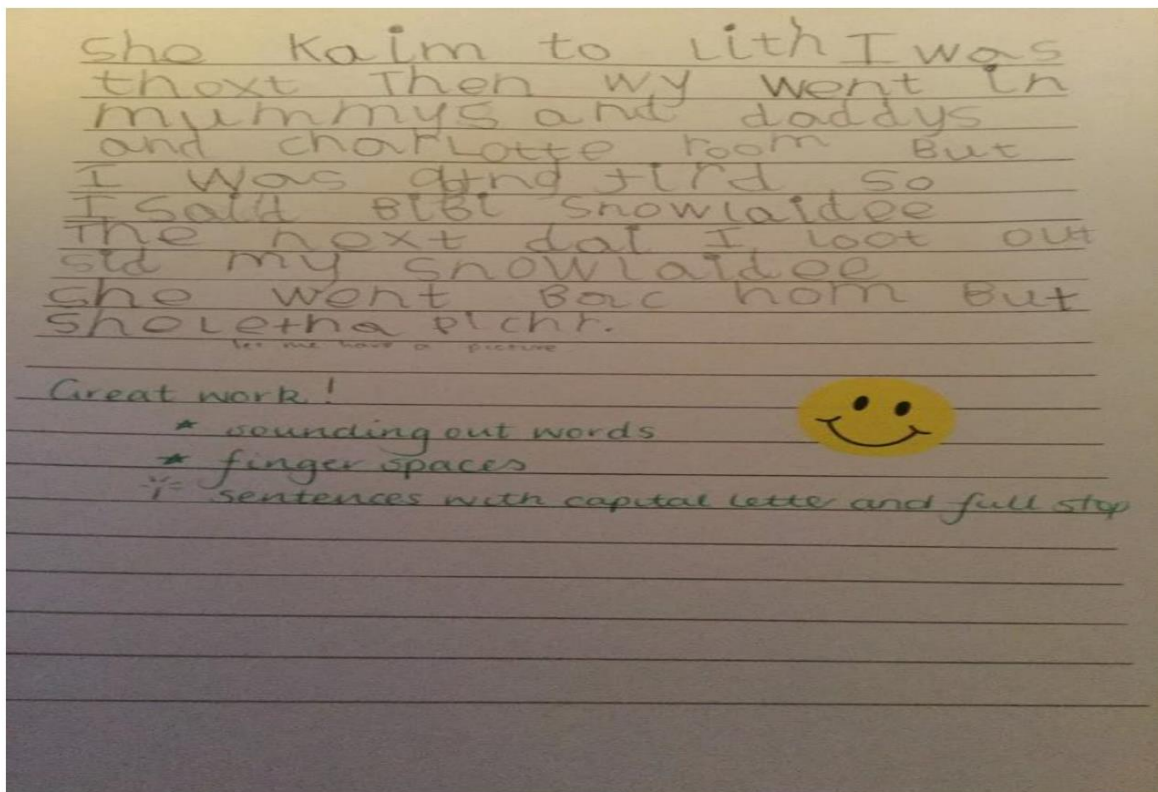 She Kaim to Lith I was
thoxt Then wy went in
mummys and daddys
and charLotte room But
I was tird so
I Said BiBi Snowlaidee
The next dai I loot out
sid my snowlaidee
She went Bac hom But
SheLetha Pichr.
let me have a picture
Great work!
* sounding out words
* finger spaces
sentences with capital lette and full stop